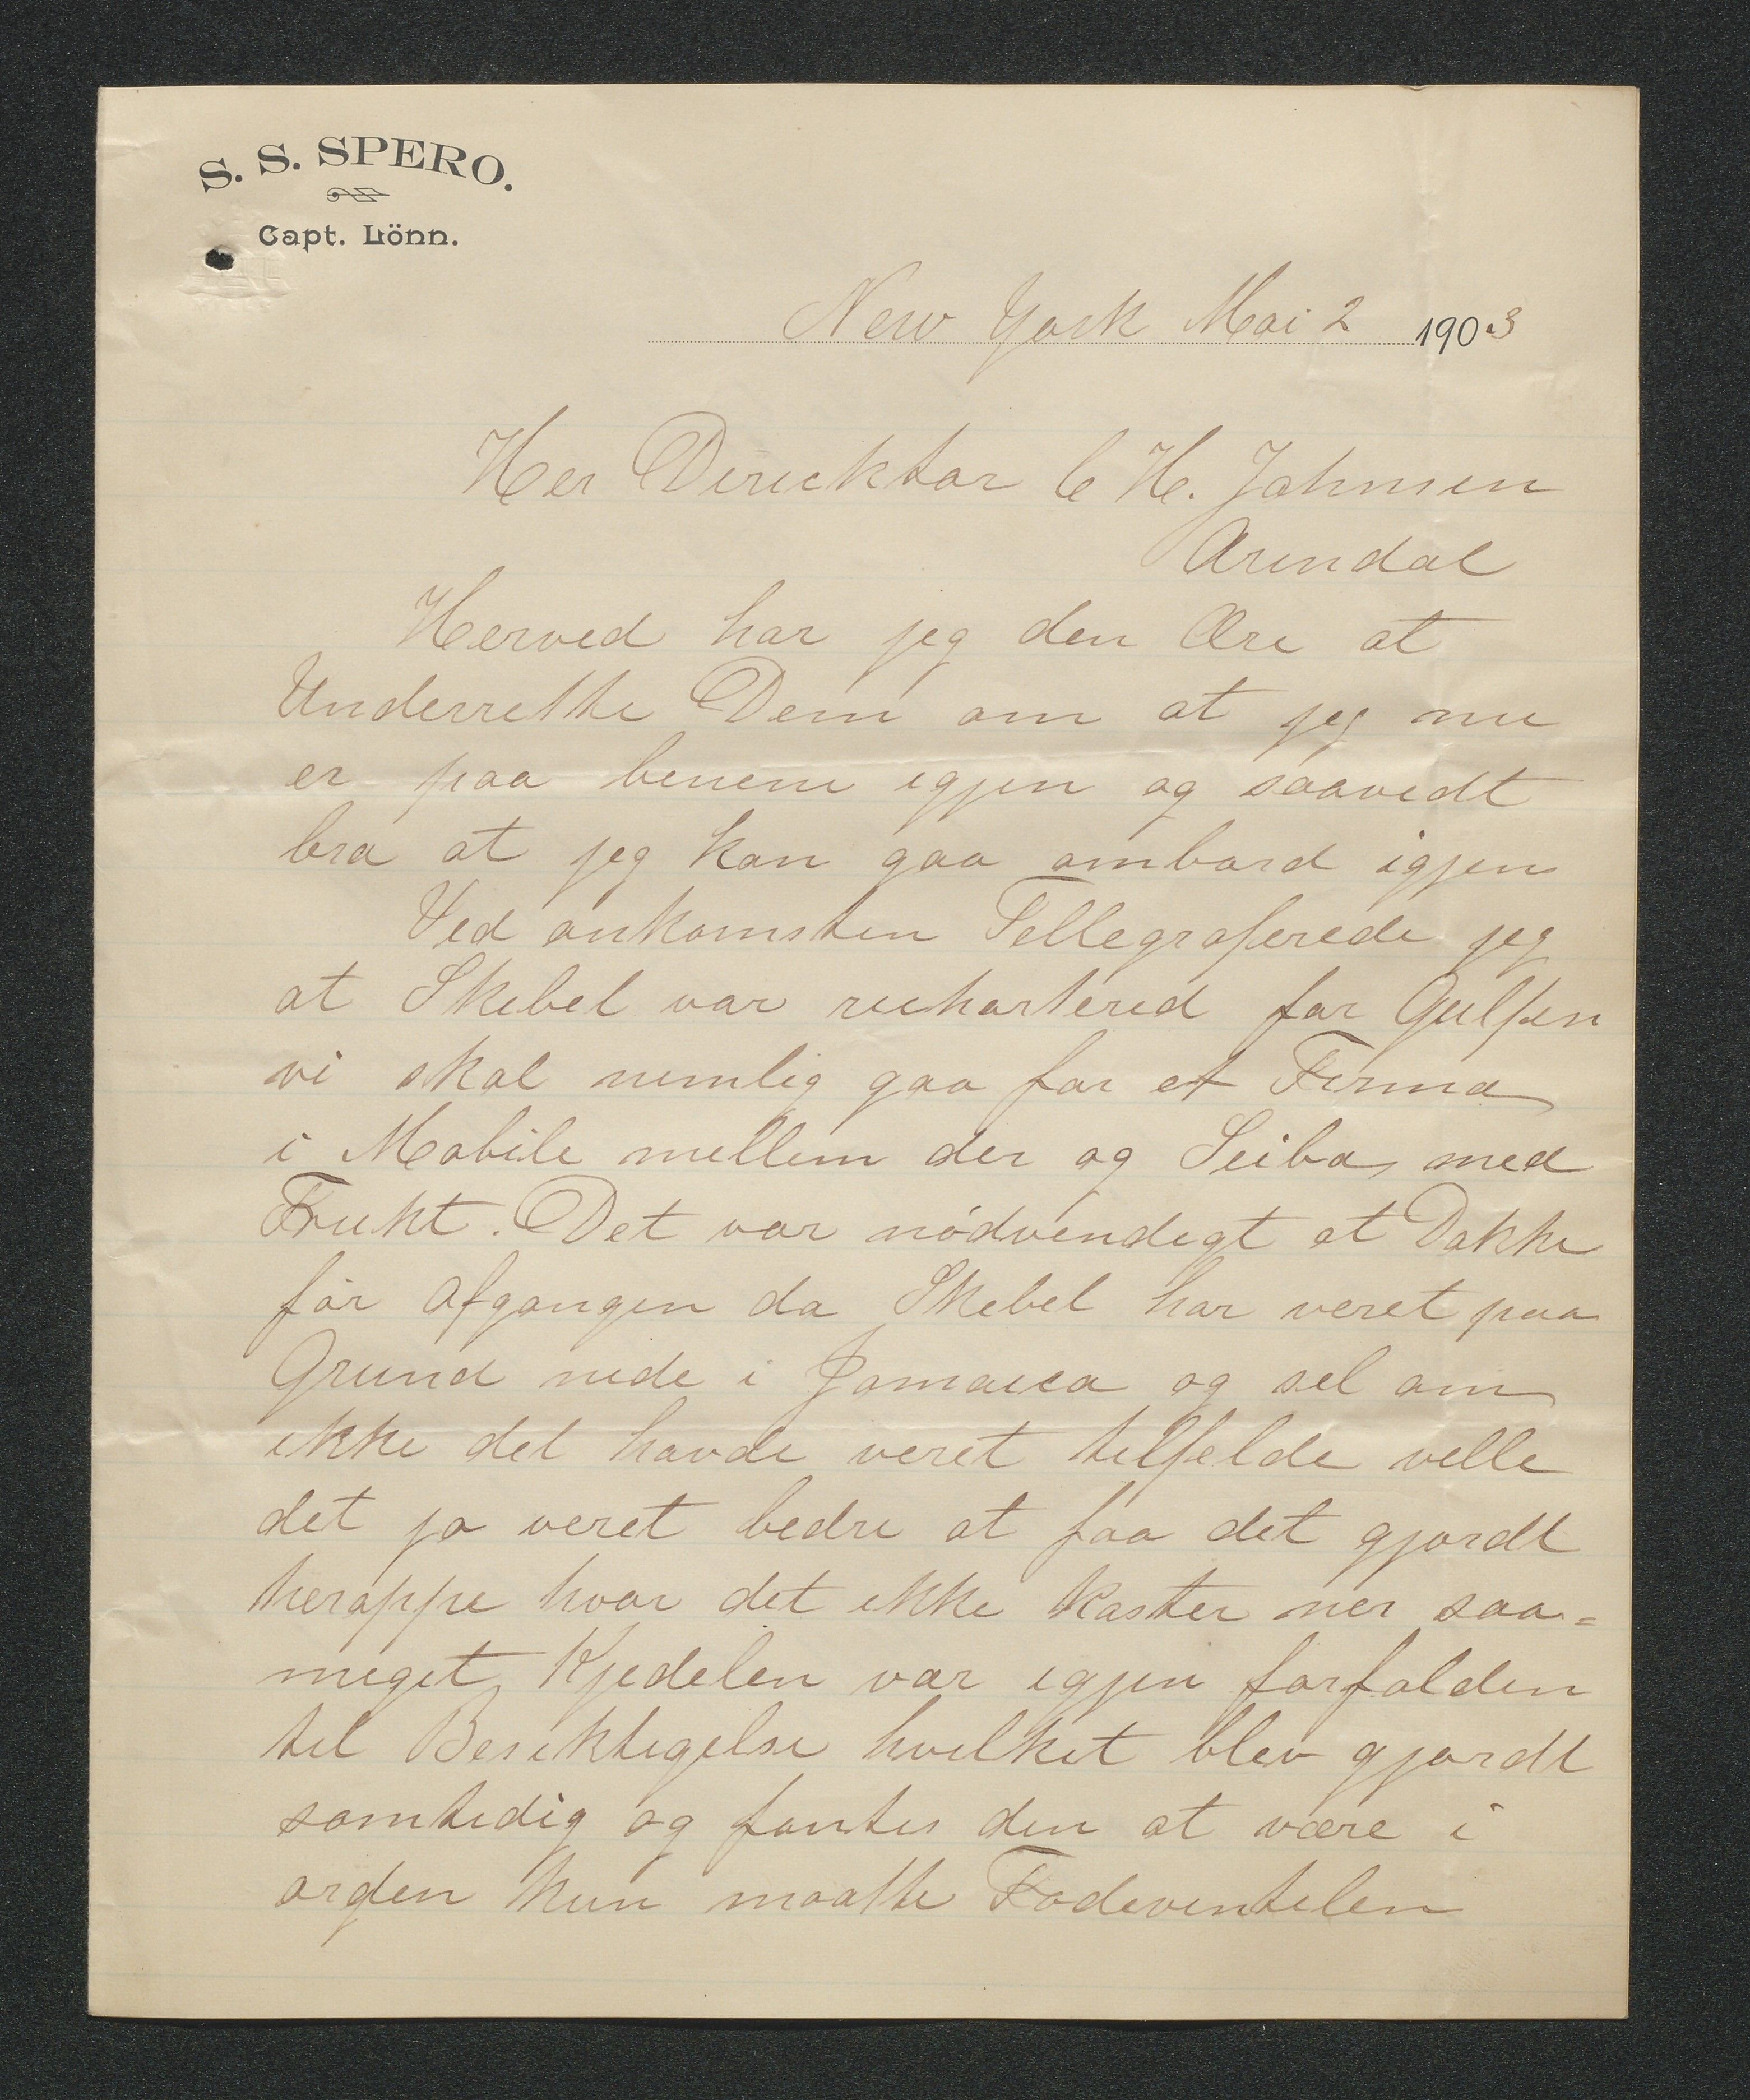 S. S. SPERO.
Capt. Lönn.
New York Mai 2 1903
Her Direcktor C H. Johnsen
Arendal
Herved har jeg den Ære at
Underrette Dem om at jeg nu
er paa benene igjen og saavidt
bra at jeg kan gaa ombord igjen
Ved ankomsten Tellegraferede jeg
at Skebet var rechartered for Gulfen
vi skal nemlig gaa for et Firma
i Mobile mellem der og Seiba med
Frukt. Det var nödvendigt at Dokke
för Afgangen da Skebet har veret paa
Grund nede i Jamaica og sel om
ikke det havde veret tilfelde ville
det jo veret bedre at faa det gjordt
heroppe hvor det ikke kaster ner saa=
meget, Kjedelen var igjen forfalden
til Besiktigelse hvilket blev gjordt
samtidig og fantes den at være i
orden kun maatte Fodeventilen